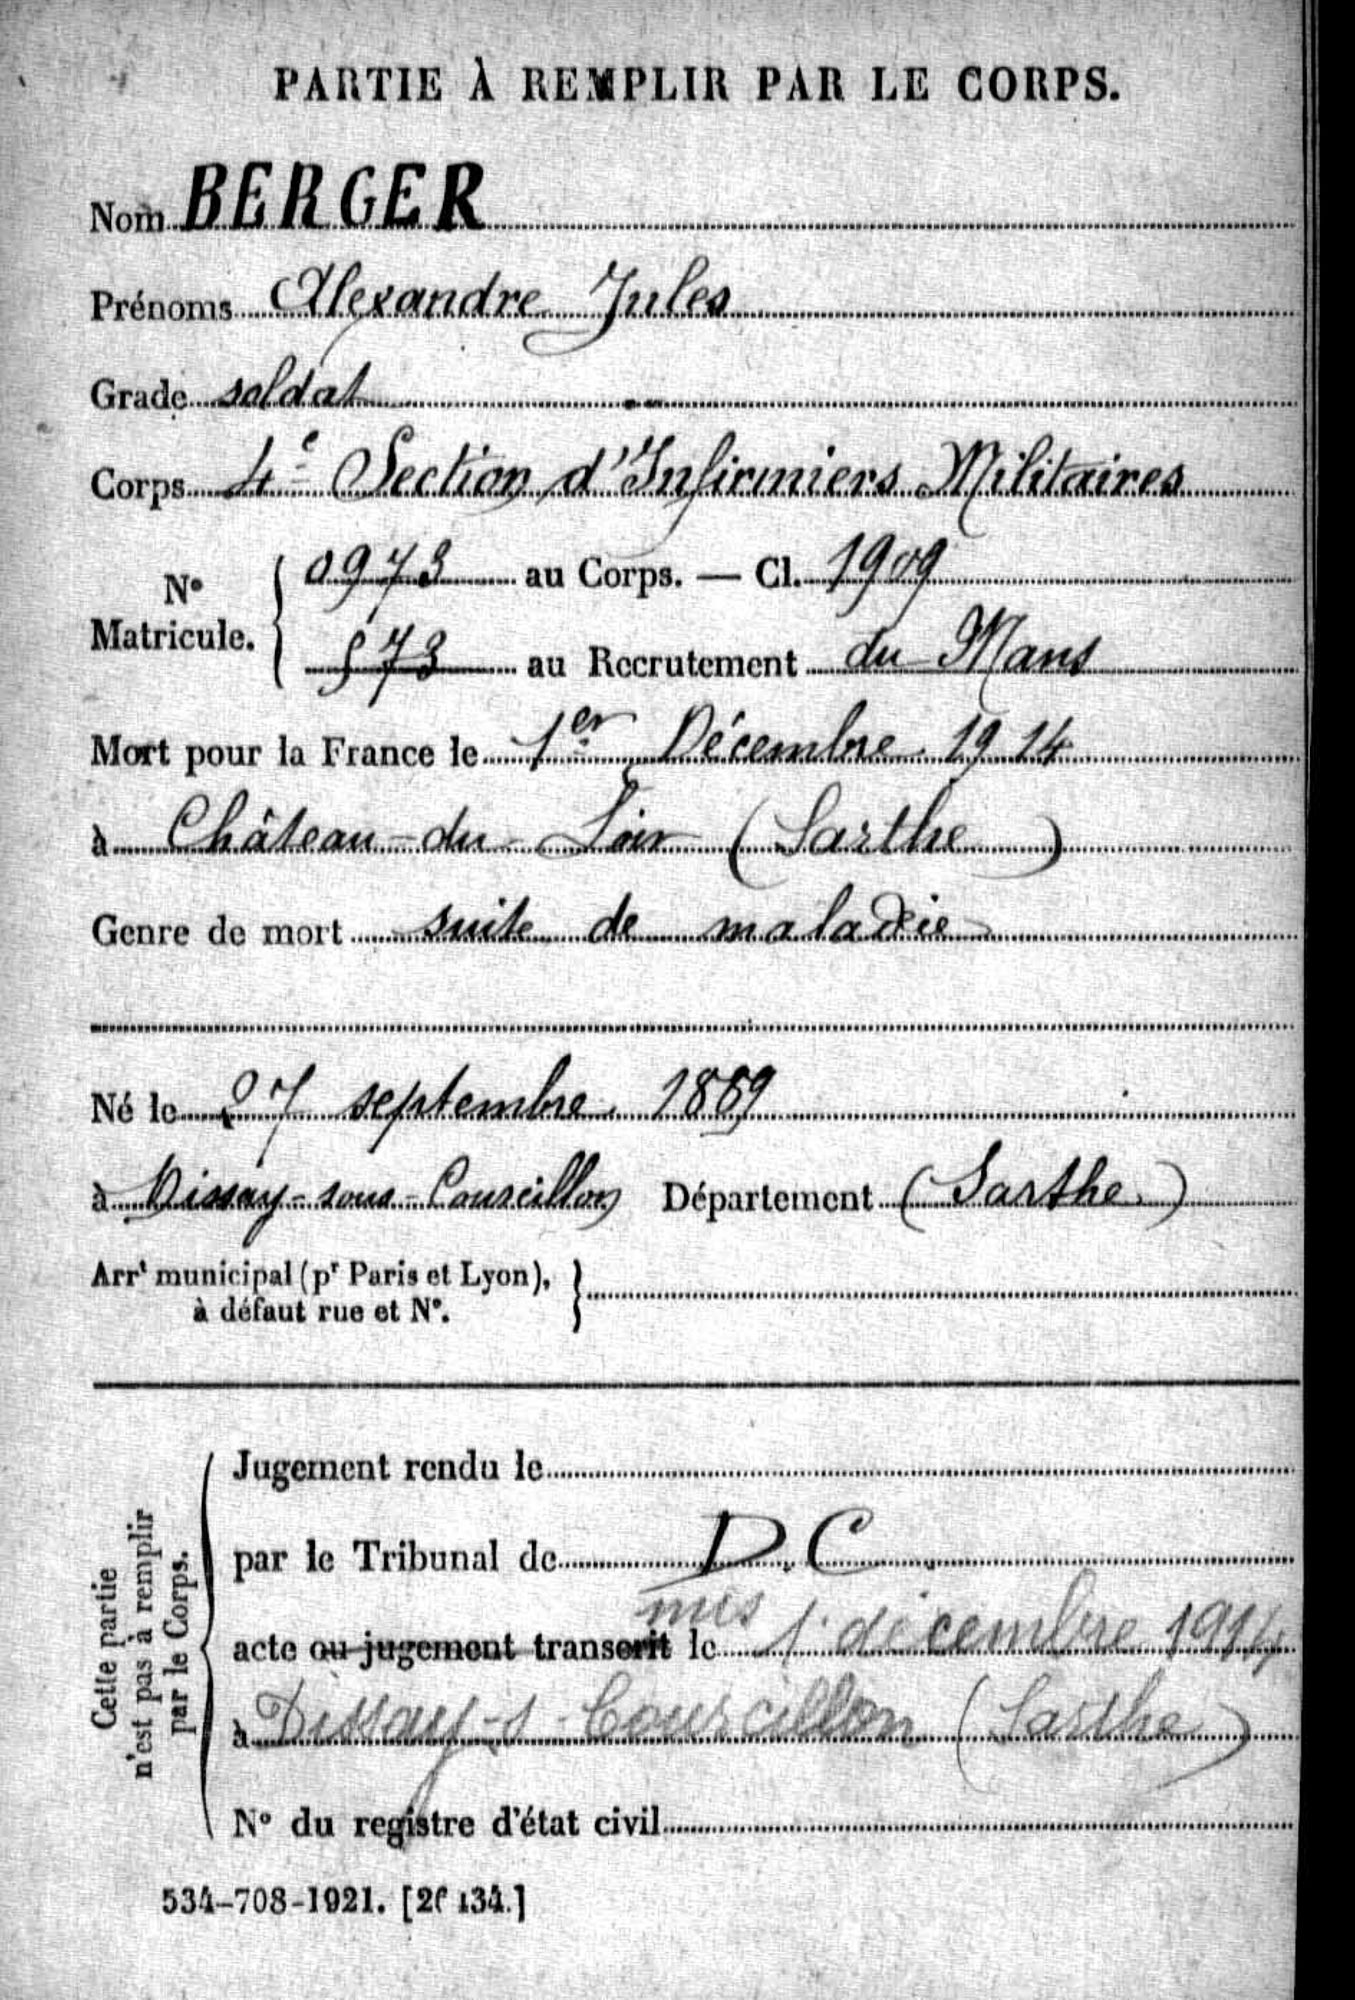 PARTIE À REMPLIR PAR LE CORPS.
Nom BERGER
Prénoms Alexandre Jules
Grade soldat
Corps 4e Section d'Infirmiers Militaires
N° Matricule. { 0973 au Corps. — Cl. 1909
973 au Recrutement du Mans
Mort pour la France le 1er Décembre 1914
à Château-du-Loir (Sarthe)
Genre de mort suite de maladie
Né le 27 septembre 1889
à Dissay-sous-Courcillon Département (Sarthe)
Arrt municipal (pr Paris et Lyon),
à défaut rue et N°.
Cette partie
n'est pas à remplir
par le Corps.
Jugement rendu le
par le Tribunal de D.C.
mis
acte ou jugement transcrit le 1. décembre 1914
à Dissay-s-Courcillon (Sarthe)
N° du registre d'état civil
534-708-1921. [26434.]